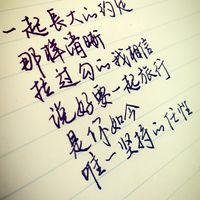 一起長大的约定
那樣清晰
拉过勾的我相信
说好要一起旅行
是你如今
唯一坚持的任性